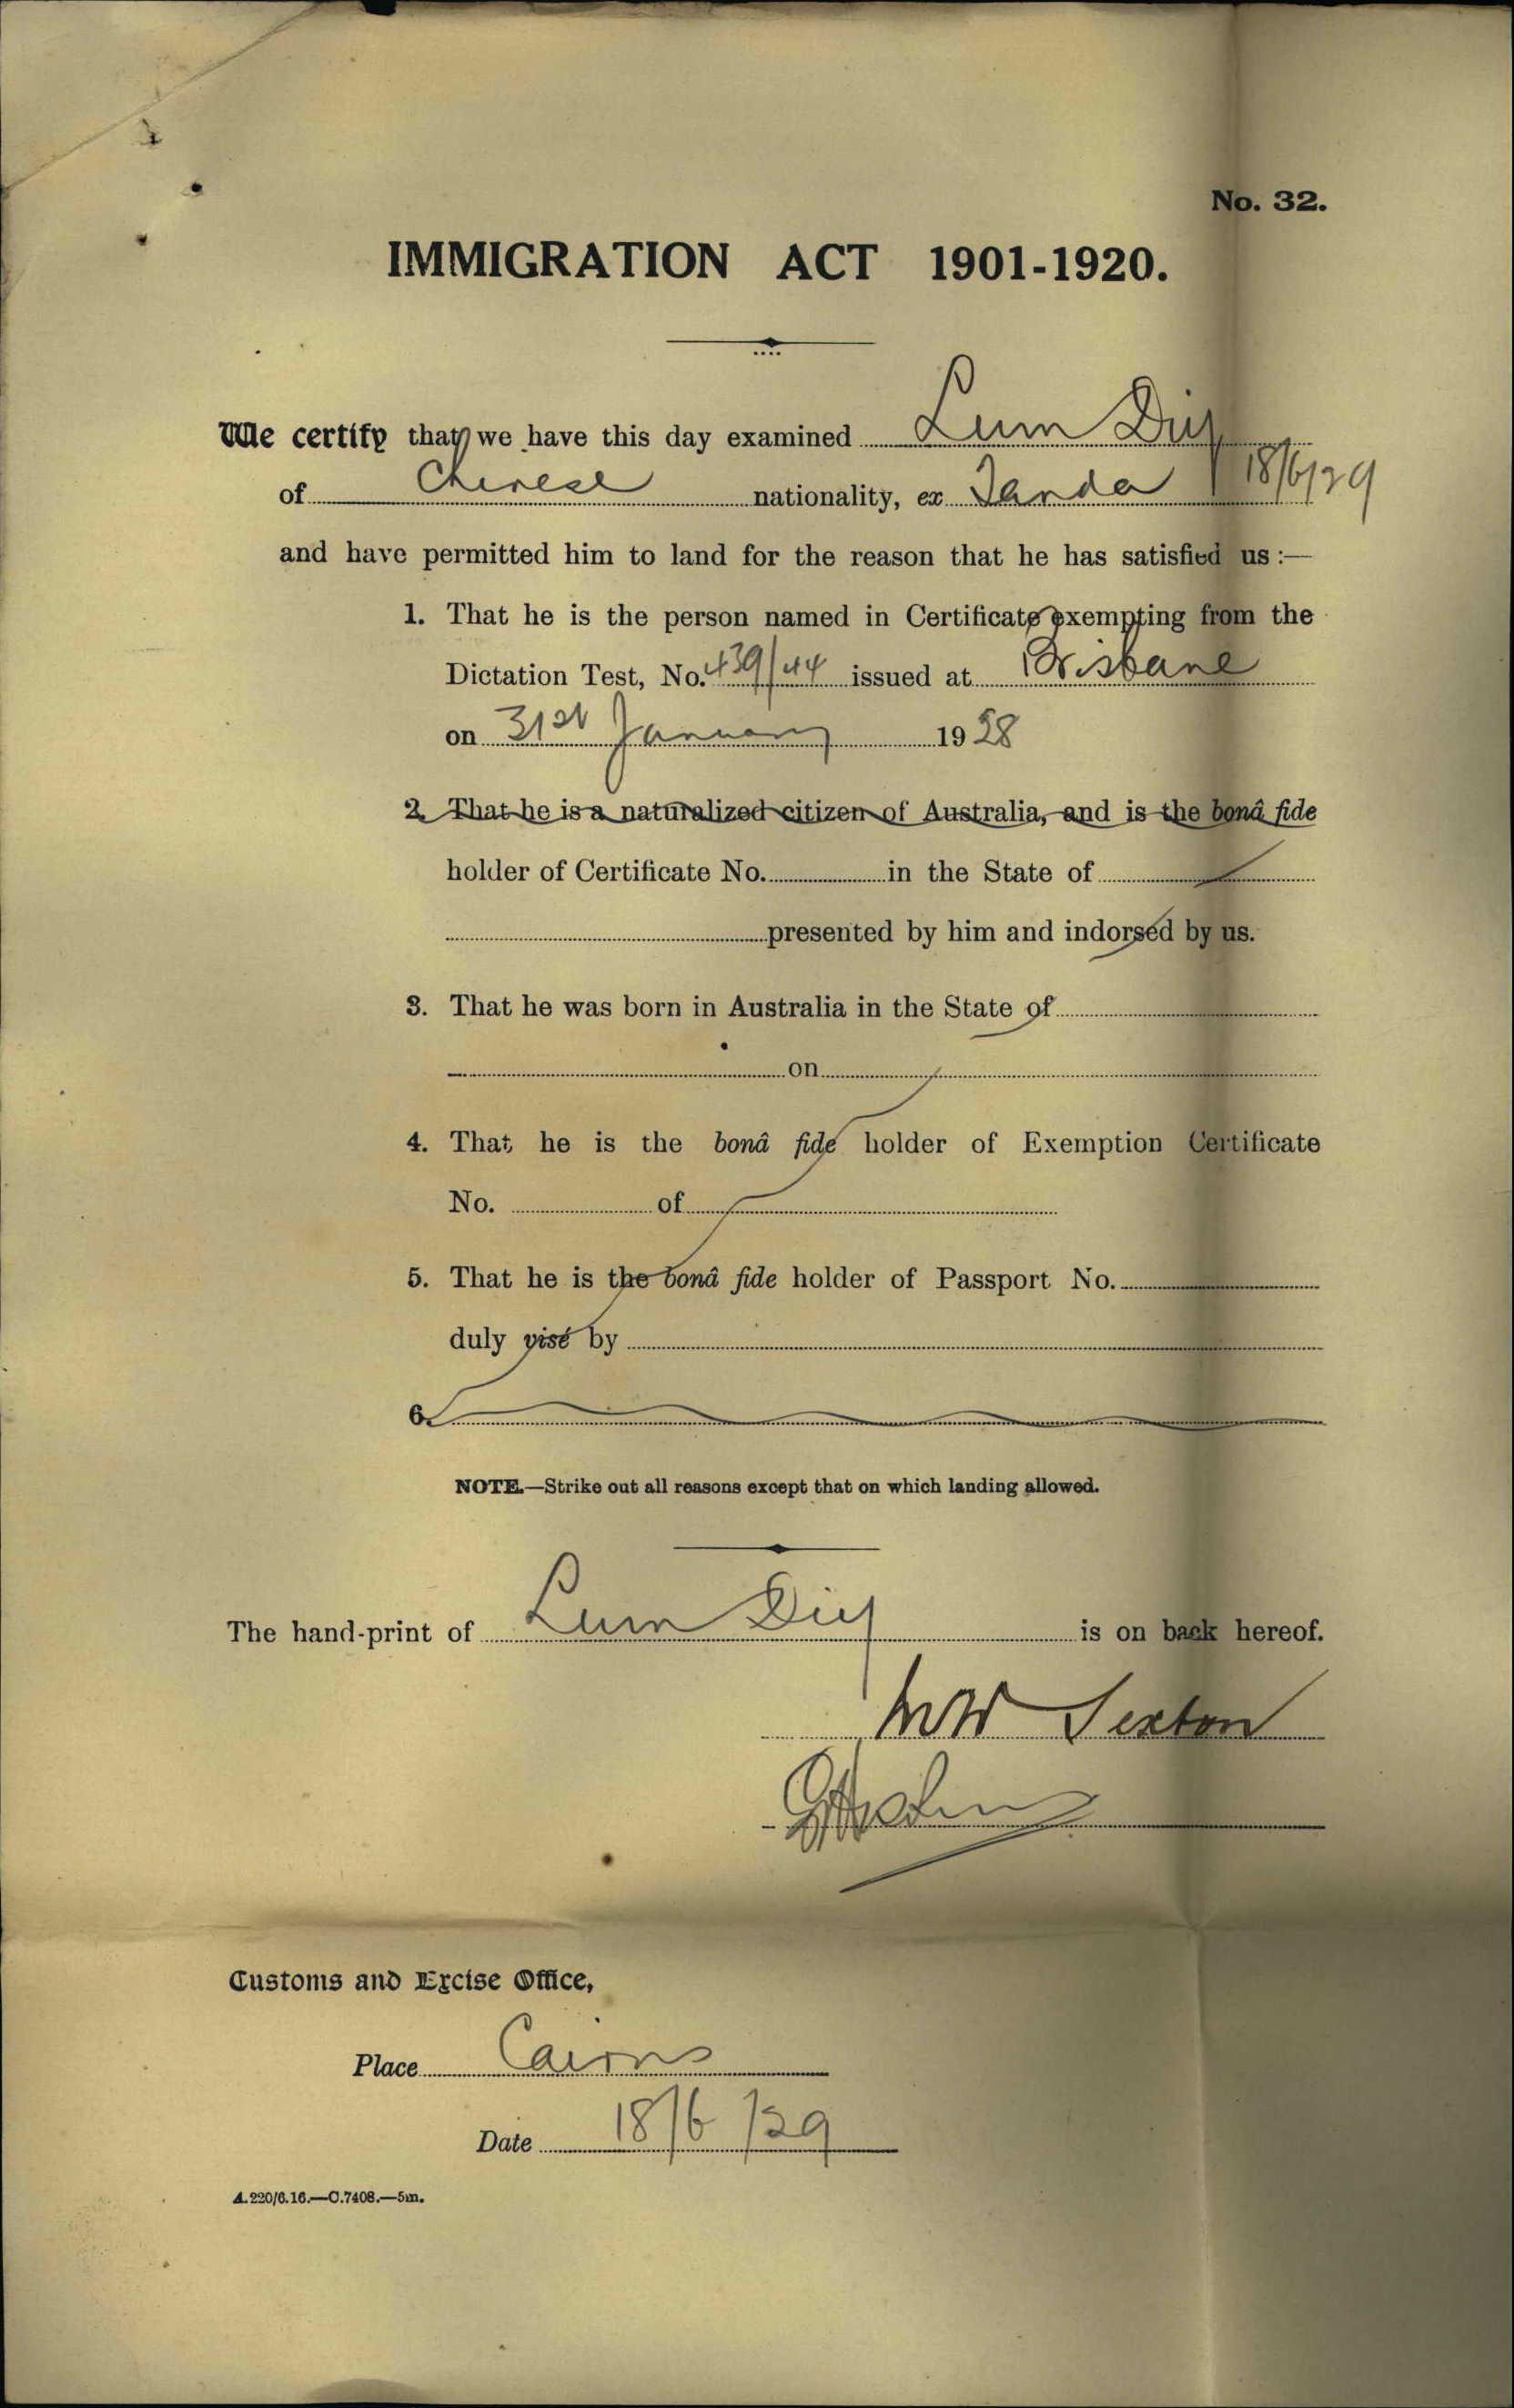 No. 32.
IMMIGRATION ACT 1901-1920.
We certify that we have this day examined Lum Diy
of Chinese nationality, ex Tanda 18/6/29
and have permitted him to land for the reason that he has satisfied us :—
1. That he is the person named in Certificate exempting from the
Dictation Test, No. 439/44 issued at Brisbane
on 31st January 1928
2. That he is a naturalized citizen of Australia, and is the bonâ fide
holder of Certificate No. in the State of
presented by him and indorsed by us.
3. That he was born in Australia in the State of
on
4. That he is the bonâ fide holder of Exemption Certificate
No. of
5. That he is the bonâ fide holder of Passport No.
duly visé by
6.
NOTE.—Strike out all reasons except that on which landing allowed.
The hand-print of Lum Diy is on back hereof.
Sexton
Customs and Excise Office,
Place Cairns
Date 18/6/29
A.220/6.16.—C.7408.—5m.